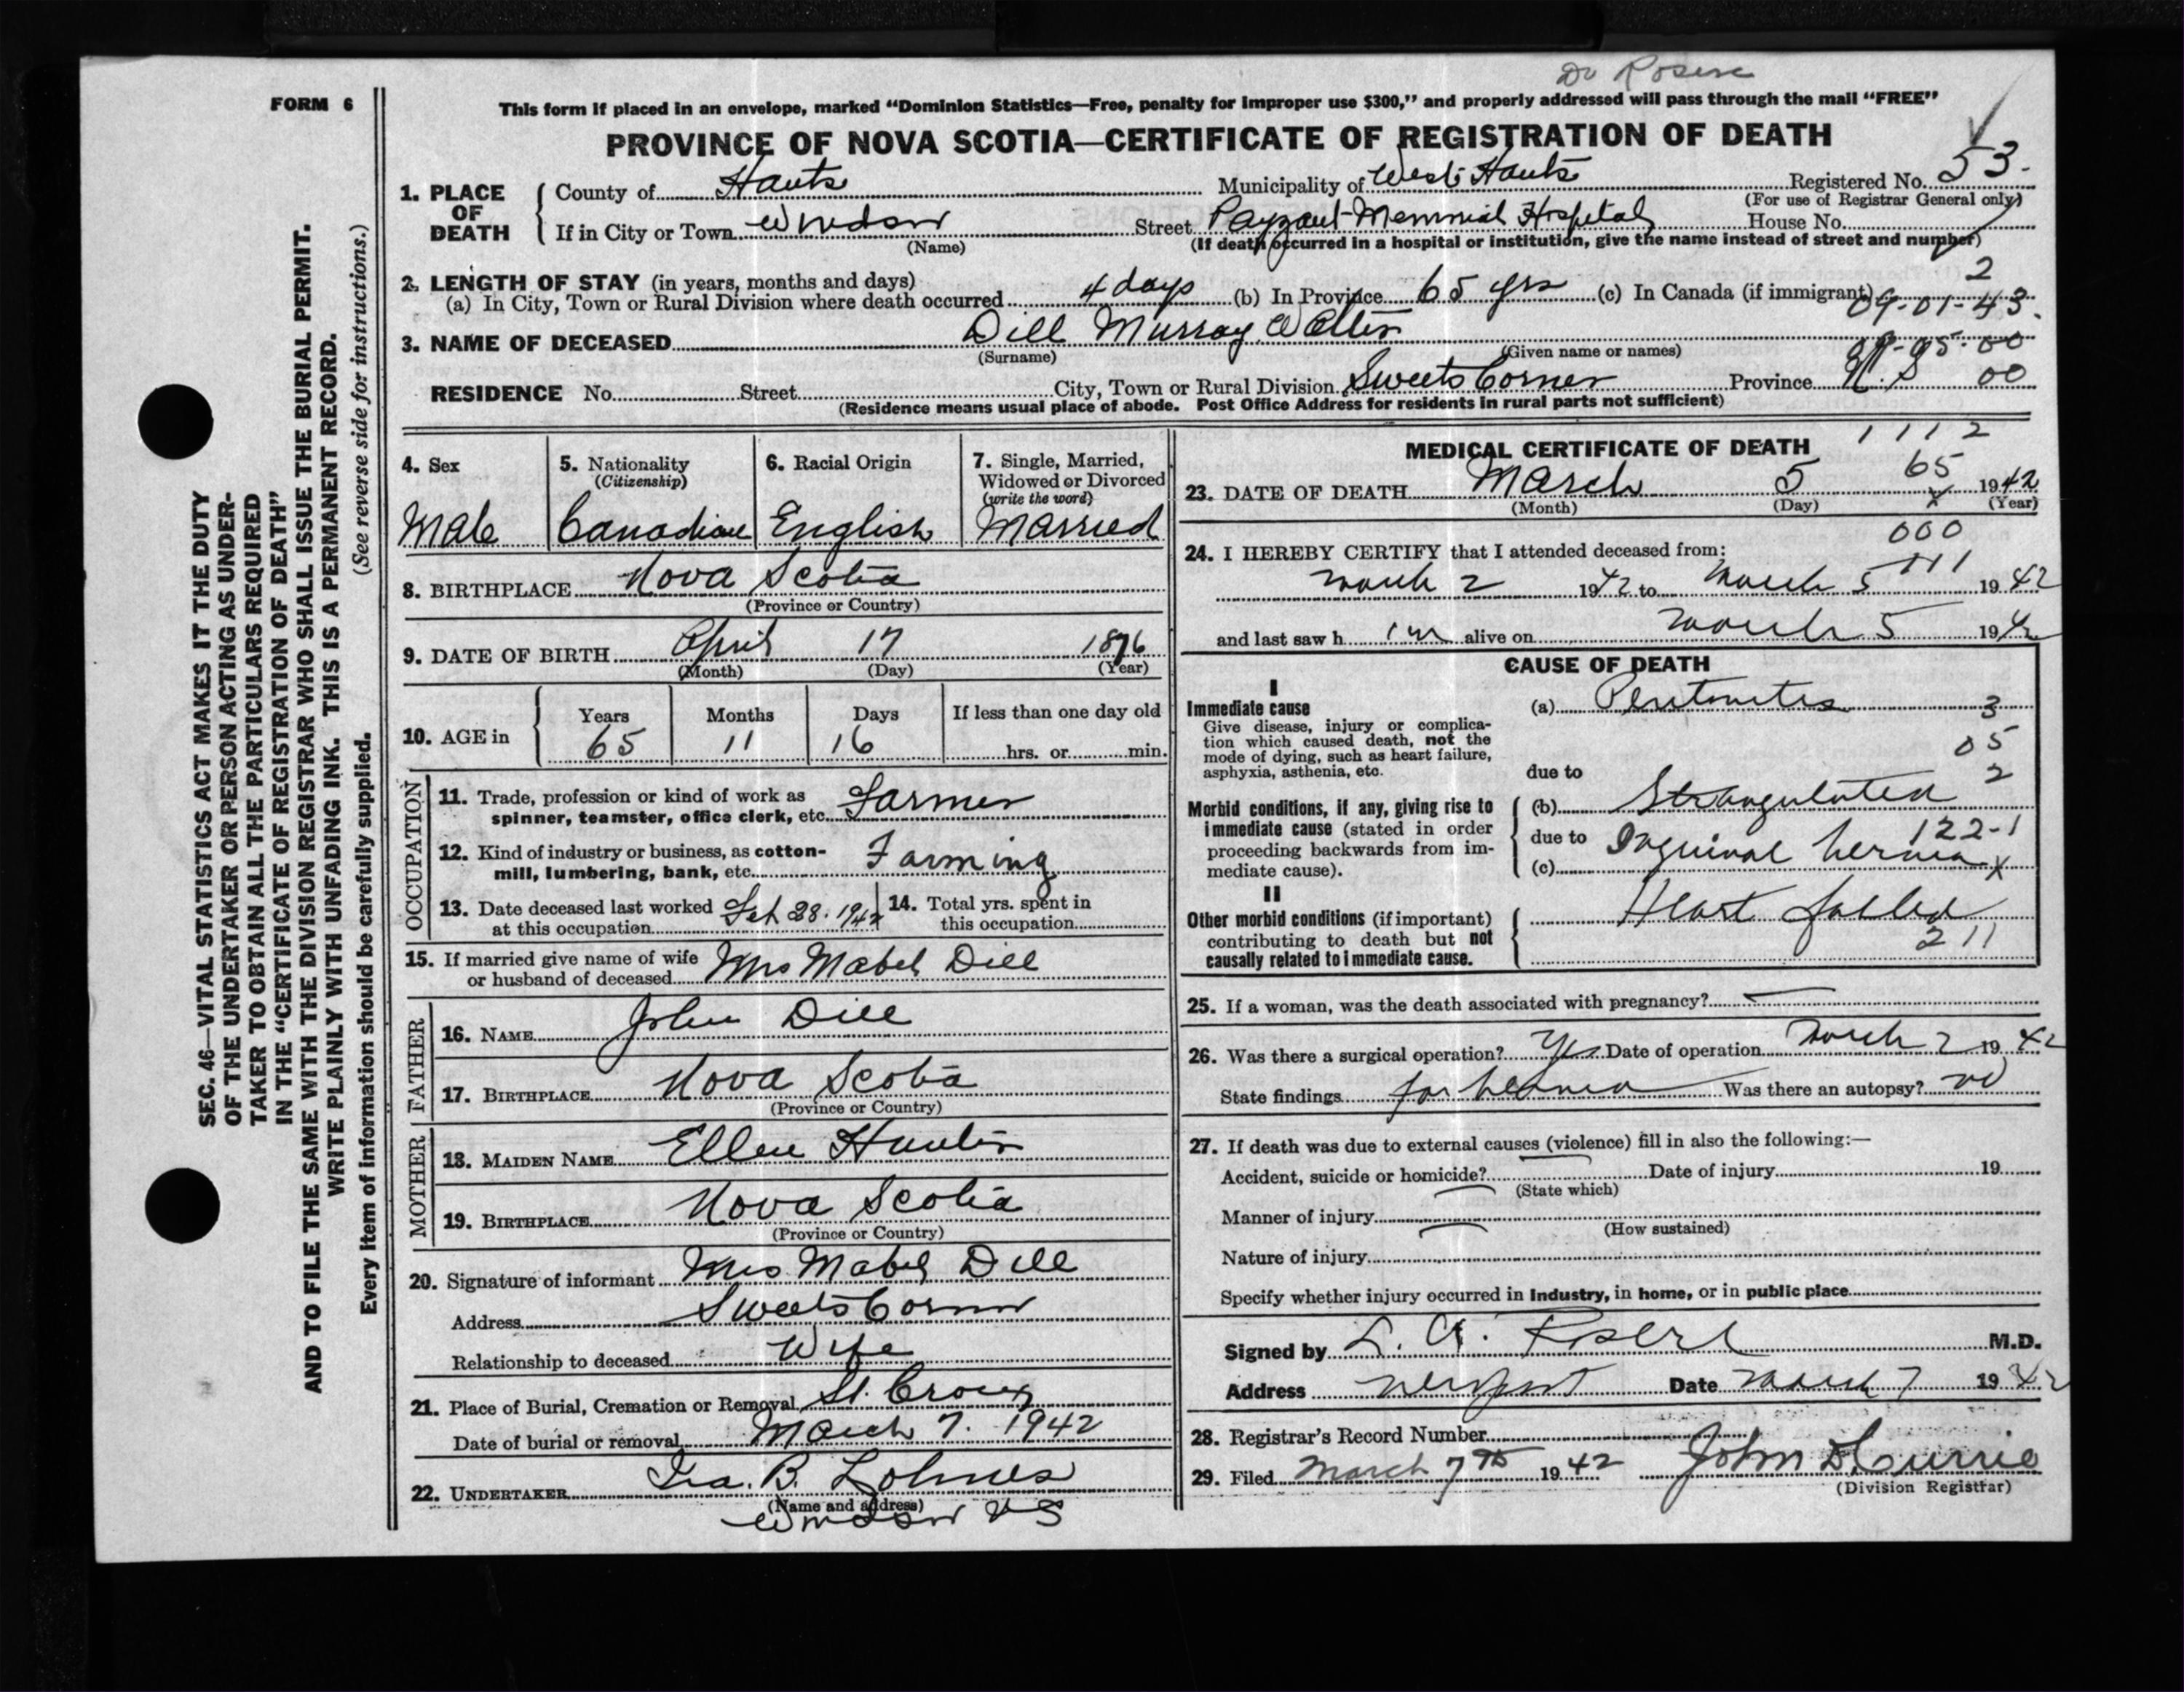 Dr Rosere
FORM 6
This form if placed in an envelope, marked "Dominion Statistics—Free, penalty for improper use $300," and properly addressed will pass through the mail "FREE"
PROVINCE OF NOVA SCOTIA—CERTIFICATE OF REGISTRATION OF DEATH
1. PLACE OF DEATH County of Hants Municipality of West Hants Registered No. 53.
(For use of Registrar General only)
If in City or Town Windsor Street Payzant Memorial Hospital House No.
(Name) (If death occurred in a hospital or institution, give the name instead of street and number)
2. LENGTH OF STAY (in years, months and days) 2
(a) In City, Town or Rural Division where death occurred 4 days (b) In Province 65 yrs (c) In Canada (if immigrant)
09-01-43.
3. NAME OF DECEASED Dill Murray Walter
(Surname) (Given name or names) 99-95-00
RESIDENCE No. Street City, Town or Rural Division Sweets Corner Province N.S 00
(Residence means usual place of abode. Post Office Address for residents in rural parts not sufficient)
4. Sex 5. Nationality (Citizenship) 6. Racial Origin 7. Single, Married, Widowed or Divorced (write the word)
Male Canadian English Married
8. BIRTHPLACE Nova Scotia
(Province or Country)
9. DATE OF BIRTH April 17 1876
(Month) (Day) (Year)
10. AGE in Years Months Days If less than one day old
65 11 16 hrs. or min.
OCCUPATION
11. Trade, profession or kind of work as spinner, teamster, office clerk, etc. Farmer
12. Kind of industry or business, as cotton-mill, lumbering, bank, etc. Farming
13. Date deceased last worked at this occupation Feb 28. 1942 14. Total yrs. spent in this occupation
15. If married give name of wife or husband of deceased Mrs Mabel Dill
FATHER
16. NAME John Dill
17. BIRTHPLACE Nova Scotia
(Province or Country)
MOTHER
18. MAIDEN NAME Ellen Hunter
19. BIRTHPLACE Nova Scotia
(Province or Country)
20. Signature of informant Mrs Mabel Dill
Address Sweets Corner
Relationship to deceased Wife
21. Place of Burial, Cremation or Removal St. Croix
Date of burial or removal March 7. 1942
22. UNDERTAKER Ira. B. Lohnes
(Name and address)
Windsor NS
MEDICAL CERTIFICATE OF DEATH 1112
65
23. DATE OF DEATH March 5 x 1942
(Month) (Day) (Year)
000
24. I HEREBY CERTIFY that I attended deceased from: 111
March 2 1942 to March 5 1942
and last saw h im alive on March 5 1942
CAUSE OF DEATH
I
Immediate cause (a) Peritonitis 3
Give disease, injury or complication which caused death, not the mode of dying, such as heart failure, asphyxia, asthenia, etc.
05
due to 2
Morbid conditions, if any, giving rise to immediate cause (stated in order proceeding backwards from immediate cause).
(b) Strangulated
due to Inguinal hernia 122-1
(c) x
II
Other morbid conditions (if important) contributing to death but not causally related to immediate cause.
Heart failed
211
25. If a woman, was the death associated with pregnancy? —
26. Was there a surgical operation? Yes Date of operation March 2 1942
State findings for hernia Was there an autopsy? no
27. If death was due to external causes (violence) fill in also the following:—
Accident, suicide or homicide? Date of injury 19
(State which)
Manner of injury
(How sustained)
Nature of injury
Specify whether injury occurred in industry, in home, or in public place
Signed by M.D.
Address Newport Date March 7 1942
28. Registrar's Record Number
29. Filed March 7th 1942 John D Currie
(Division Registrar)
SEC. 46—VITAL STATISTICS ACT MAKES IT THE DUTY
OF THE UNDERTAKER OR PERSON ACTING AS UNDER-
TAKER TO OBTAIN ALL THE PARTICULARS REQUIRED
IN THE "CERTIFICATE OF REGISTRATION OF DEATH"
AND TO FILE THE SAME WITH THE DIVISION REGISTRAR WHO SHALL ISSUE THE BURIAL PERMIT.
WRITE PLAINLY WITH UNFADING INK. THIS IS A PERMANENT RECORD.
Every item of information should be carefully supplied. (See reverse side for instructions.)